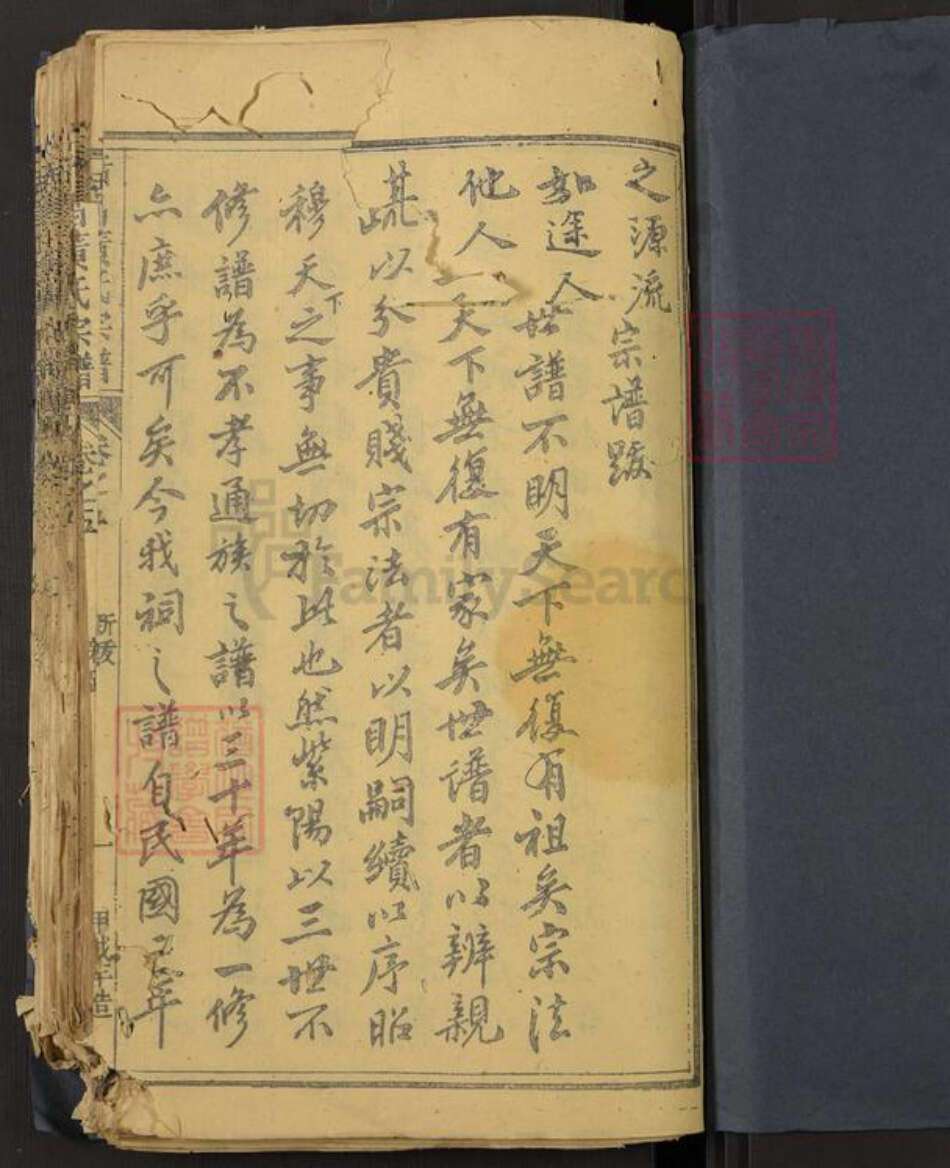 之源流
宗譜跋
如途人
世譜不明天下無復有祖矣宗法
他人
天下無復有家矣世譜者以辨親
疏以分貴賤宗法者以明嗣續以序昭
穆天下之事無切於此也然紫陽以三世不
修譜為不孝通族之譜以三十年為一修
亦庶乎可矣今我祠之譜自民國年
氏宗譜
卷之五
所跋
甲戌年造
FamilySearch